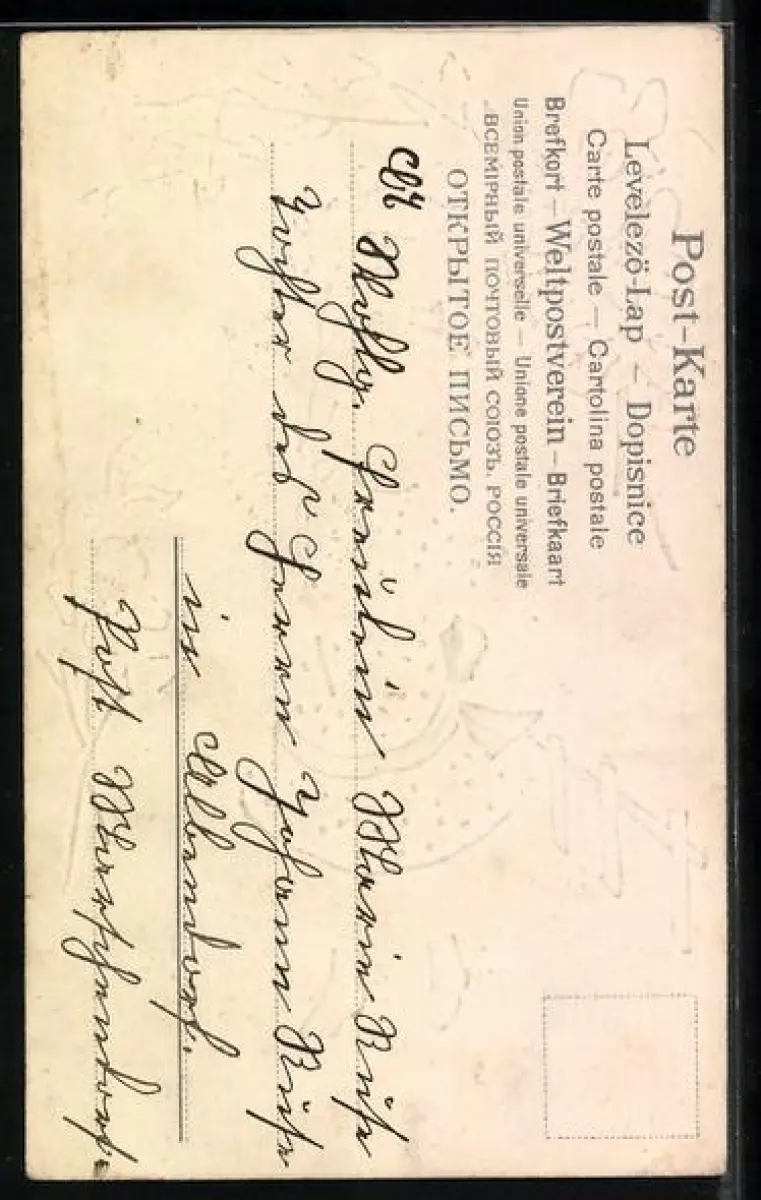 Post-Karte
Levelező-Lap – Dopisnice
Carte postale — Cartolina postale
Brefkort – Weltpostverein – Briefkaart
Union postale universelle — Unione postale universale
ВСЕМIРНЫЙ ПОЧТОВЫЙ СОЮЗЪ. РОССIЯ
ОТКРЫТОЕ ПИСЬМО.
Fräulein Marie
Tochter des Herrn Johann
in Albendorf.
Post